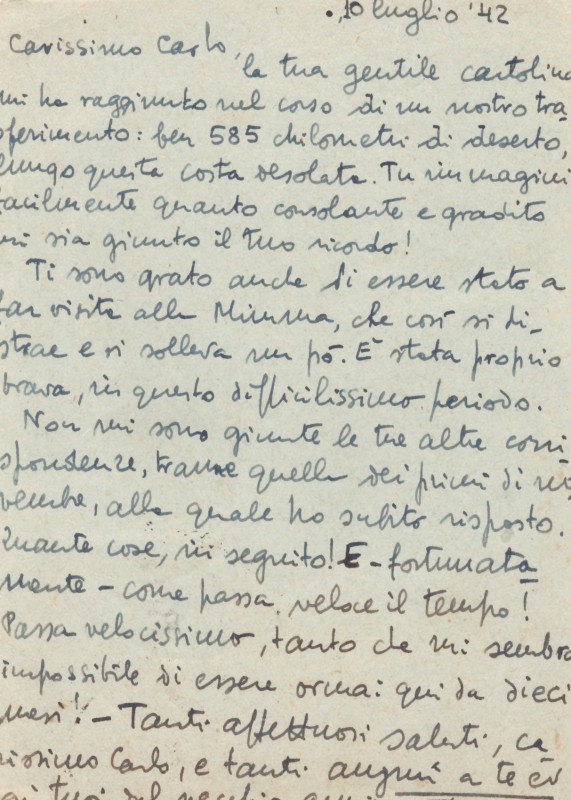 10 luglio '42
Carissimo Carlo,
la tua gentile cartolina
mi ha raggiunto nel corso di un nostro tra-
sferimento: ben 585 chilometri di deserto,
lungo questa costa desolata. Tu immagini
facilmente quanto consolante e gradito
mi sia giunto il tuo ricordo!
Ti sono grato anche di essere stato a
far visita alla Mimma, che così si di-
strae e si solleva un pò. E' stata proprio
brava, in questo difficilissimo periodo.
Non mi sono giunte le tue altre corri
spondenze, tranne quella dei primi di no
vembre, alla quale ho subito risposto.
Quante cose, in seguito! E - fortunata
mente - come passa veloce il tempo!
Passa velocissimo, tanto che mi sembra
impossibile di essere ormai qui da dieci
mesi! - Tanti affettuosi saluti, ca
rissimo Carlo, e tanti auguri a te ed
ai tuoi dal vecchio